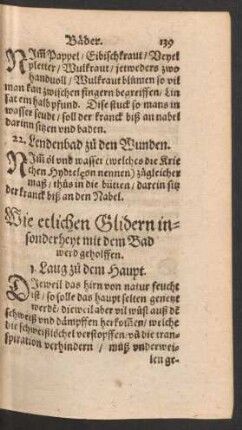 Bäder. 139
NIm̃ Pappel / Eibischkraut / Veyel
pletter / Wulkraut / jetweders zwo
handuoll / Wulkraut blůmen so vil
man kan zwischen fingern begreiffen / Lin
sat ein halb pfund. Dise stuck so mans in
wasser seudt / soll der kranck biß an nabel
darinn sitzen vnd baden.
22. Lendenbad zů den Wunden.
NIm̃ öl vnd wasser (welches die Krie
chen Hydreleon nennen) zůgleicher
maß / thůs in die bütten / darein sitz
der kranck biß an den Nabel.
Wie etlichen Glidern in-
sonderheyt mit dem Bad
werd geholffen.
1. Laug zů dem Haupt.
DIeweil das hirn von natur feucht
ist / so solle das haupt selten genetzt
werdē / dieweil aber vil wůst auß dē
schweiß vnd dämpffen herkom̃en / welche
die schweißlöchel verstopffen / vñ die tran-
spiration verhindern / můß vnderwei-
len ge-